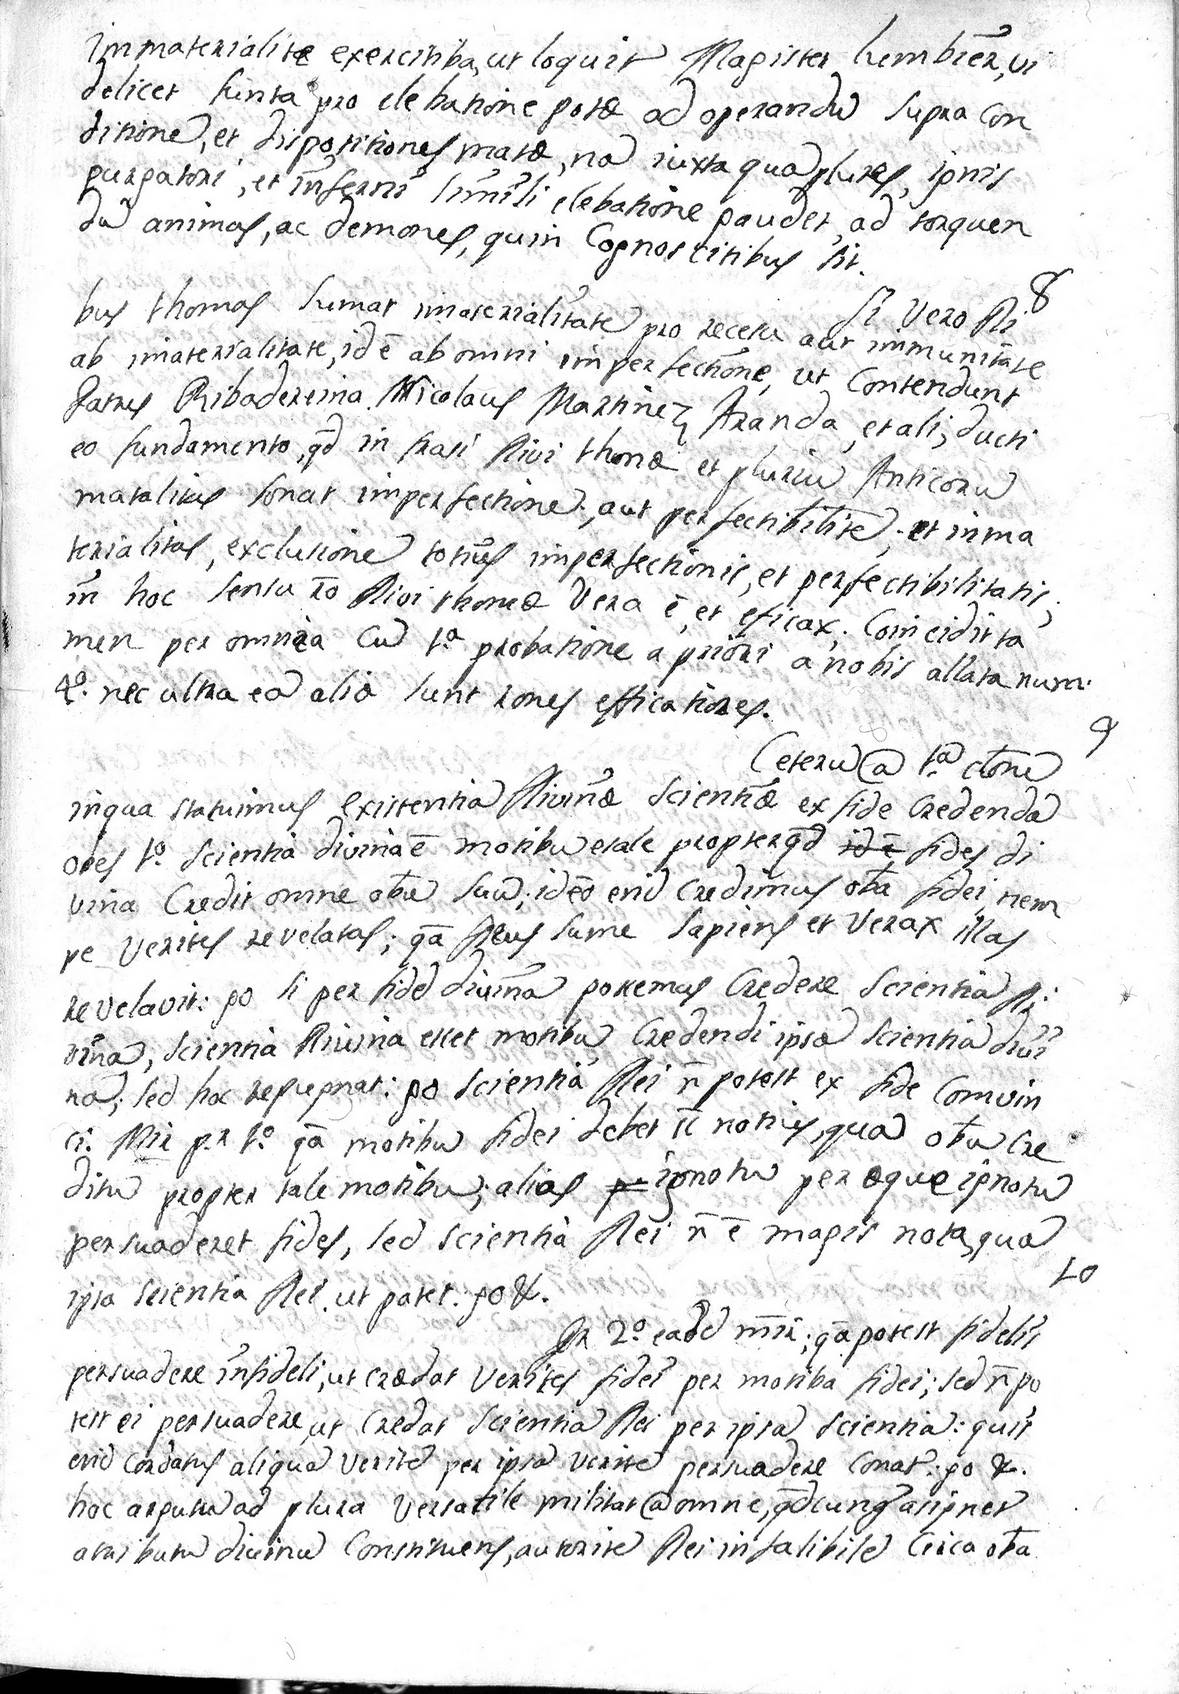 immaterialitæ exercitiba, ut loquit Magister lumbier, vi
delicet sunta pro elebatione potæ ad operandũ supra con
ditione, et dispositiones matæ, nã iuxta quã plures, ignis
purgatori, et inferni simili elebatione gaudet, ad torquen
dũ animas, ac demones, quin Cognoscitibus sit.
8
Si vero Di
bus thomas sumat imaterialitate pro recesu aut immunitate
ab imaterialitate, id ē ab omni imperfectione, ut Contendunt
Patres Ribadereina Nicolaus Martinez Aranda, et ali, ducti
eo fundamento, qd in frasi Divi thomæ et pluriũ Anticorũ
matalitas sonat imperfectione, aut perfectibilite; et inma
terialitas, exclusione totius imperfectionis, et perfectibilitatis;
in hoc sensu rõ Divi thomæ vera ē, et eficax; Coincidit ta
men per omnia cũ 1ª probatione a priori a nobis allata num.
4º. nec ultra eã aliæ sunt rones efficatiores.
9
Ceterũ @ 1ª ctone
inqua statuimus existentiã Divinæ scientiæ ex fide Credendã
opes 1º. scientia divina ē motibũ etale propterqd id ē fides di
vina Credit omne obtũ suũ; ideo enĩ credimus obta fidei nem
pe verites revelatas; qã Deus sume sapiens et verax illas
revelavit: go si per fidẽ divinã posemus Credere scientiã Di
vina, scientia Divina esset motibũ Credendi ipsã scientiã divi
nã; sed hoc repugnat: go scientia Dei ñ potest ex fide Convin
ci. Mir pr 1º. qã motibũ fidei debet ēē notius, quã obtũ cre
ditũ propter tale motibũ; alias ignotũ per æque ignotũ
persuaderet fides, sed scientia Dei ñ ē magis nota, quã
ipsa scientia Dei, ut patet. go &.
10
Pr 2º. eadẽ mir; qã potest fidelis
persuadere infideli, ut credat verites fidei per motiba fidei; sed ñ po
test ei persuadere, ut credat scientiã Dei per ipsã scientiã: quis
enĩ cordatus aliquã veritẽ per ipsã veritẽ persuadere Conat: go &.
hoc argutũ ad plura versatile militat @ omne, qdcunq asignet
atributũ divinũ Constituens, autorite Dei infalibile Circa obta